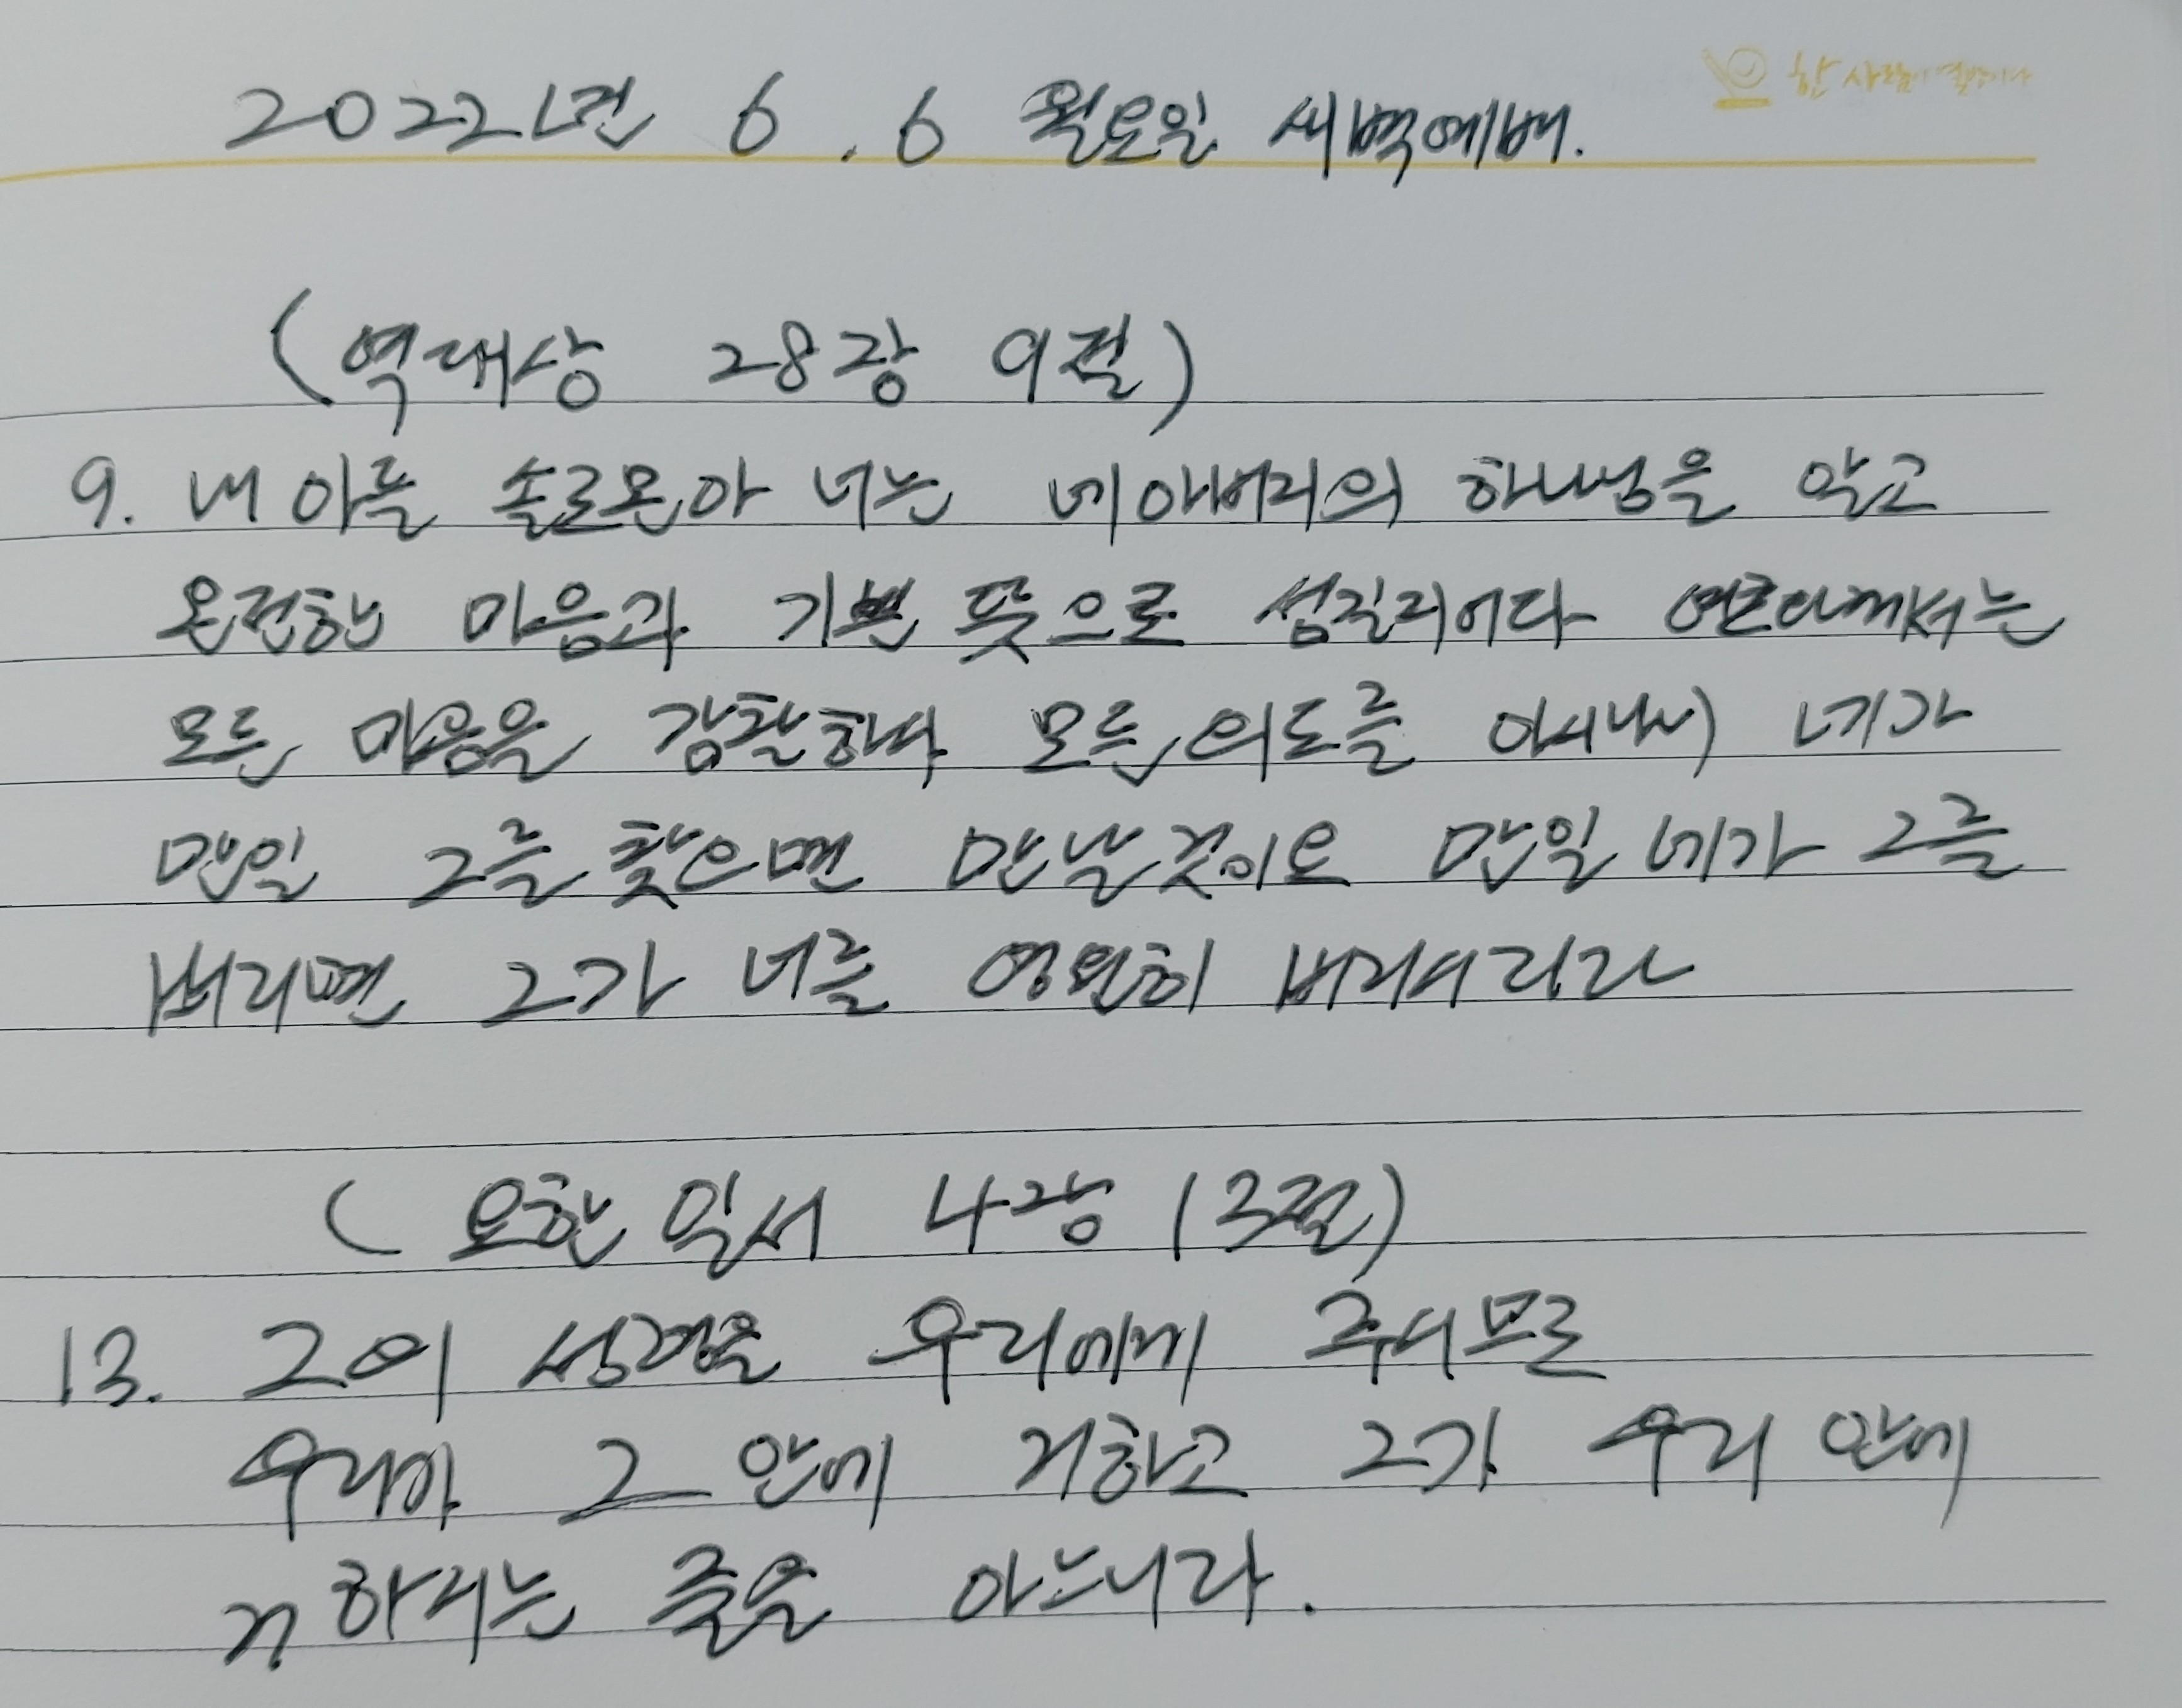 한 사람이
2022년 6. 6 월요일 새벽예배.
(역대상 28장 9절)
9. 내 아들 솔로몬아 너는 네 아버지의 하나님을 알고
온전한 마음과 기쁜 뜻으로 섬길지어다 여호와께서는
모든 마음을 감찰하사 모든 의도를 아시나니 네가
만일 그를 찾으면 만날것이요 만일 네가 그를
버리면 그가 너를 영원히 버리시리라
(요한 일서 4장 13절)
13. 그의 성령을 우리에게 주시므로
우리가 그 안에 거하고 그가 우리 안에
거하시는 줄을 아느니라.